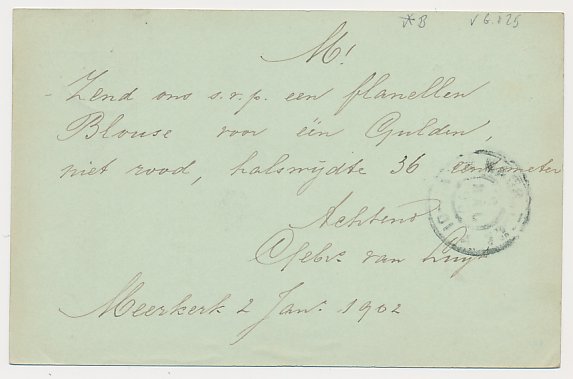 *B √ G. 225
M!
Zend ons s.v.p. een flanellen
Blouse voor één Gulden,
niet rood, halswijdte 36 centimeter
Achtend
Gebrs. van Luyk
Meerkerk 2 Jan. 1902